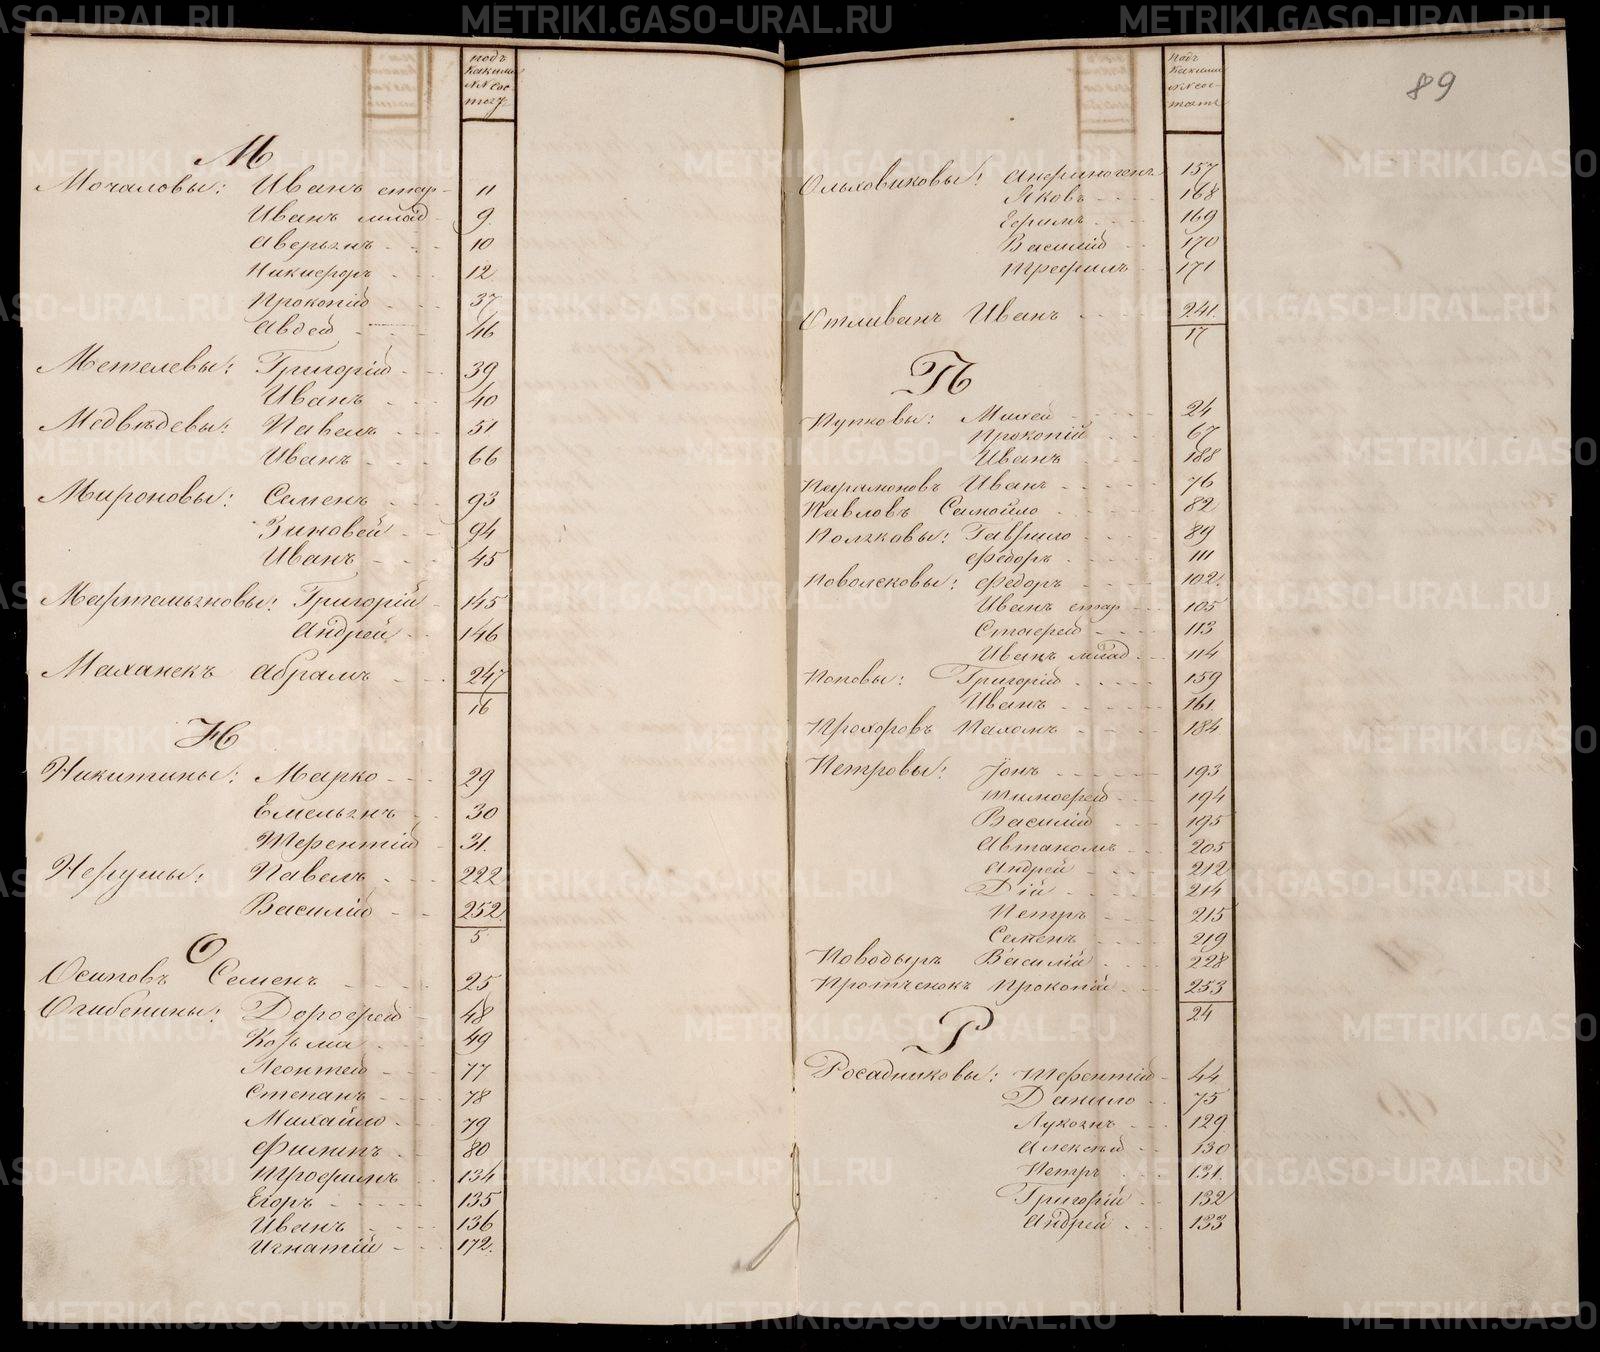 подъ
какими
№№ сос-
тоятъ
М
Мочаловы: Иванъ стар - 11
Иванъ млад - 9.
Аверьянъ - - - 10
Никифоръ - - - 12
Прокопій - - - 37
Авдей - - - 46
Метелевы: Григорій - - - 39
Иванъ - - - 40
Медвѣдевы: Павелъ - - - 51
Иванъ - - - 66
Мироновы: Семенъ - - - 93
Зиновей - - - 94
Иванъ - - - 45
Мартемьяновы: Григорій - 145
Андрей - - - 146
Маханекъ Абрамъ - - - 247
16
Н
Никитины: Марко - - - 29
Емельянъ - - 30
Терентій - 31.
Нерушы: Павелъ - - - 222
Василій - - 252.
5
О
Осиповъ Семенъ - - - - 25
Огибенины: Дорофей - 48
Козьма - - - 49
Леонтей - - - 77
Степанъ - - - 78
Михайло - - - 79
Филипъ - - - 80
Трофимъ - - 134
Егоръ - - - - - 135
Иванъ - - - - 136
Игнатій - - - 172.
89
Подъ
какими
№№ сос-
тоятъ
Ольховиковы: Анфиногенъ 157
Яковъ - - - - 168
Ефимъ - - - 169
Василій - - 170
Трефилъ - - 171
Отливанъ Иванъ - - - - 241.
17
П
Пупковы: Михей - - - - - 24
Прокопій - - 67
Иванъ - - - - 188
Парамоновъ Иванъ - - - - 76
Павловъ Самойло - - - - 82
Поляковы: Гаврило - - - - 89
Федоръ - - - - 111
Поволековы: Федоръ - - - - 102.
Иванъ стар - - 105
Стафей - - - - 113
Иванъ млад - - 114
Поповы: Григорій - - - - - 159
Иванъ - - - - - 161.
Прохоровъ Пахомъ - - - - 184
Петровы: Іонъ - - - - - - 193
Тимофей - - - 194
Василій - - - 195
Автакомъ - - - 205
Андрей - - - - 212
Дій - - - - 214
Петръ - - - - 215
Семенъ - - - - 219
Поводыръ Василій - - - - 228
Протченокъ Прокопій - - - 253
24
Р
Росадниковы: Терентій - 44
Данило - - 75
Лукоянъ - - 129
Алексѣй - - 130
Петръ - - - 131.
Григорій - - 132
Андрей - - - 133
METRIKI.GASO-URAL.RU